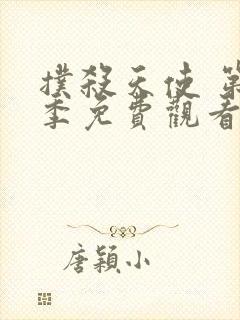 撲殺天使 第
季免費觀看
唐穎小